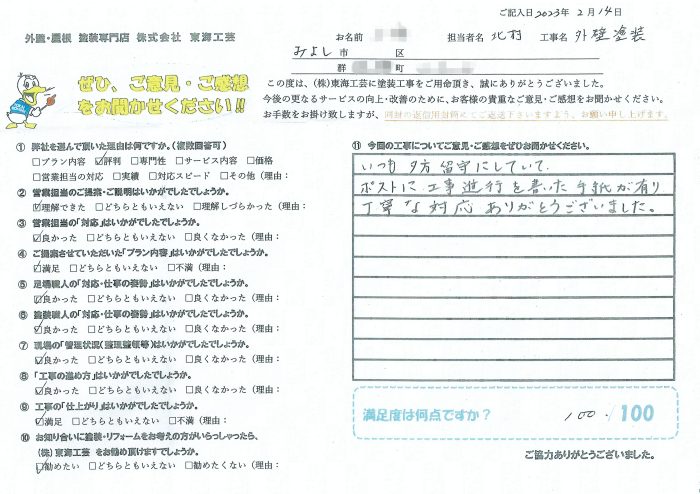 ご記入日2023年 2月14日
外壁・屋根 塗装専門店 株式会社 東海工芸
お名前
担当者名 北村 工事名 外壁塗装
みよし市 区
群 町
ぜひ、ご意見・ご感想
をお聞かせください!!
この度は、(株)東海工芸に塗装工事をご用命頂き、誠にありがとうございました。
今後の更なるサービスの向上・改善のために、お客様の貴重なご意見・ご感想をお聞かせください。
お手数をお掛け致しますが、同封の返信用封筒にてご返送下さいますよう、お願い申し上げます。
① 弊社を選んで頂いた理由は何ですか。(複数回答可)
□プラン内容 ☑評判 □専門性 □サービス内容 □価格
□営業担当の対応 □実績 □対応スピード □その他(理由:
② 営業担当のご提案・ご説明はいかがでしたでしょうか。
☑理解できた □どちらともいえない □理解しづらかった(理由:
③ 営業担当の「対応」はいかがでしたでしょうか。
☑良かった □どちらともいえない □良くなかった(理由:
④ ご提案させていただいた「プラン内容」はいかがでしたでしょうか。
☑満足 □どちらともいえない □不満(理由:
⑤ 足場職人の「対応・仕事の姿勢」はいかがでしたでしょうか。
☑良かった □どちらともいえない □良くなかった(理由:
⑥ 塗装職人の「対応・仕事の姿勢」はいかがでしたでしょうか。
☑良かった □どちらともいえない □良くなかった(理由:
⑦ 現場の「管理状況(整理整頓等)」はいかがでしたでしょうか。
☑良かった □どちらともいえない □良くなかった(理由:
⑧ 「工事の進め方」はいかがでしたでしょうか。
☑良かった □どちらともいえない □良くなかった(理由:
⑨ 工事の「仕上がり」はいかがでしたでしょうか。
☑満足 □どちらともいえない □不満(理由:
⑩ お知り合いに塗装・リフォームをお考えの方がいらっしゃったら、
(株)東海工芸 をお勧め頂けますでしょうか。
☑勧めたい □どちらともいえない □勧めたくない(理由:
⑪ 今回の工事についてご意見・ご感想をぜひお聞かせください。
いつも夕方留守にしていて、
ポストに工事進行を書いた手紙が有り
丁寧な対応ありがとうございました。
満足度は何点ですか? 100 /100
ご協力ありがとうございました。